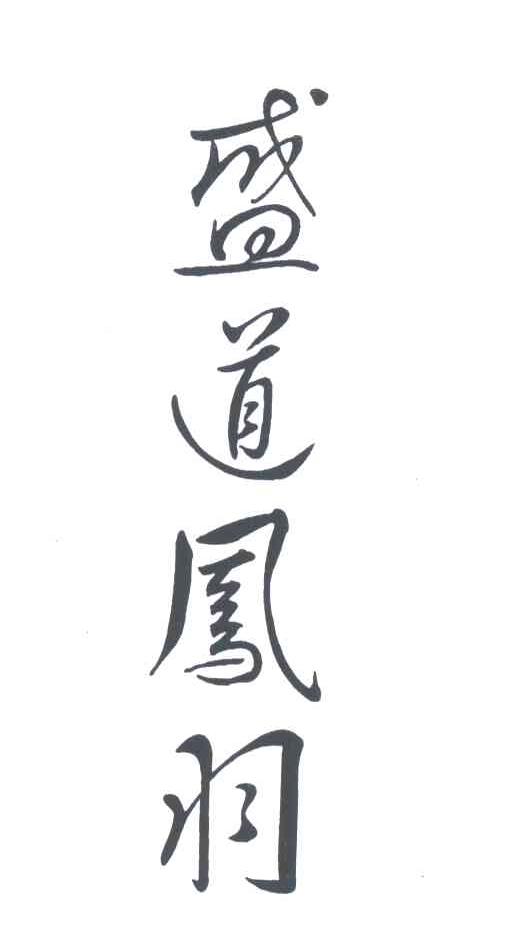 盛道鳳羽